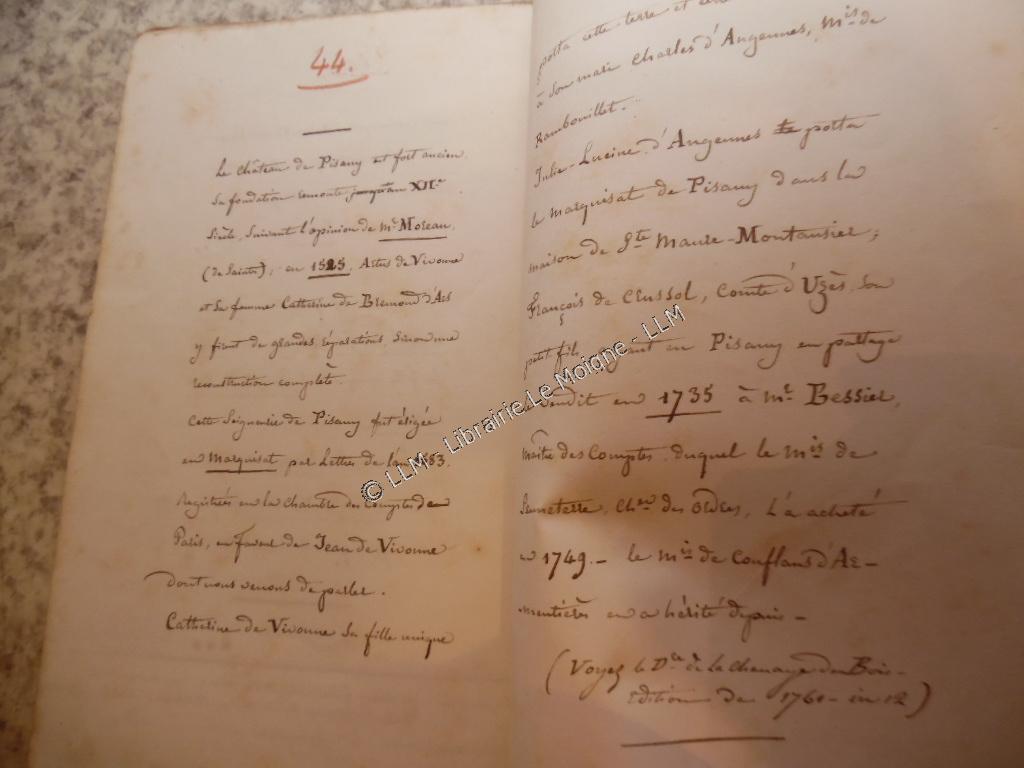 44.
Le château de Pisany est fort ancien.
Sa fondation remonte jusqu'au XII.e
Siècle, suivant l'opinion de mr Moreau,
(de Saintes); en 1525, Artus de Vivonne
et sa femme Catherine de Bremond d'Ars
y firent de grandes réparations, sinon une
reconstruction complète.
Cette Seigneurie de Pisany fut érigée
en Marquisat par Lettres de l'an
Registrées en la Chambre des Comptes de
Paris, en faveur de Jean de Vivonne
dont nous venons de parler.
Catherine de Vivonne sa fille unique
porta cette terre et
à son mari Charles d'Angennes, Mis de
Rambouillet.
Julie-Lucine d'Angennes porta
le marquisat de Pisany dans la
maison de Ste Maure-Montausier;
François de Crussol, Comte d'Uzès, son
petit fils, ayant eu Pisany en partage
le vendit en 1735 à Mr. Bessier,
Maître des Comptes, duquel le Mis de
Senneterre, Cher des Ordres, l'a acheté
en 1749. - le Mis de Conflans d'Ar-
mentières en a hérité depuis -
(Voyez le Dre de la Chenaye des Bois-
édition de 1761 - in 12)
© LLM - Librairie Le Moigne - LLM